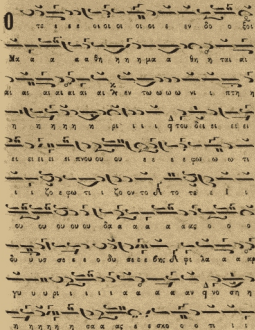 Ο τε ε ε οι οι οι οι ε εν δο ο ξοι
Μα α α α θη η η η μα α θη η ται αι
αι αι αι αι αι αι αι εν τω ω ω ω νι ι πτη η
η η η η η ρι ι ι ι του δει ει ει ει
ει ει ει ει πνου ου ου ε ε ε φω ω ω τι
ι ι ζο ε φω τι ι ζο ον το το τε ε
ου ου ου ου ου δα α α α ας ο ο ο
δυ υ υσ σε ε ο δυ σσε ε βης φι λα α α αρ
γυ υ υ ρι ι ι ι α α α αν νο ση η
η η η η η σα α ας ε ε σκο ο ο τι ι ι